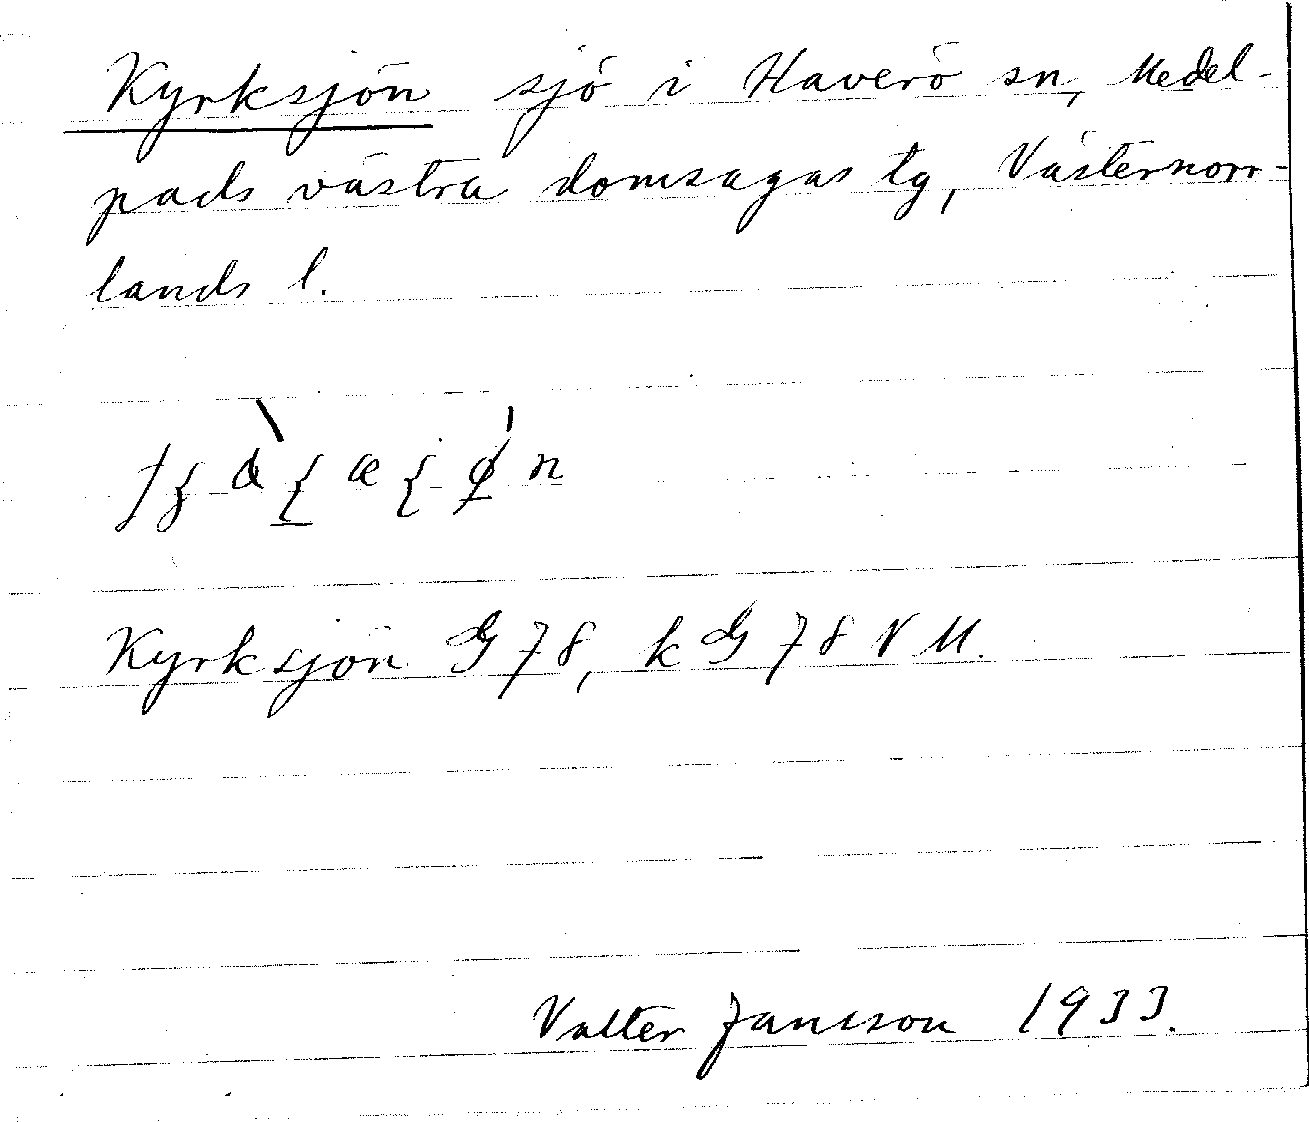 Kyrksjön sjö i Haverö sn, Medel-
pads västra domsagas tg, Västernorr-
lands l.
Kyrksjön G 78, k G 78 V M.
Valter Jansson 1933.